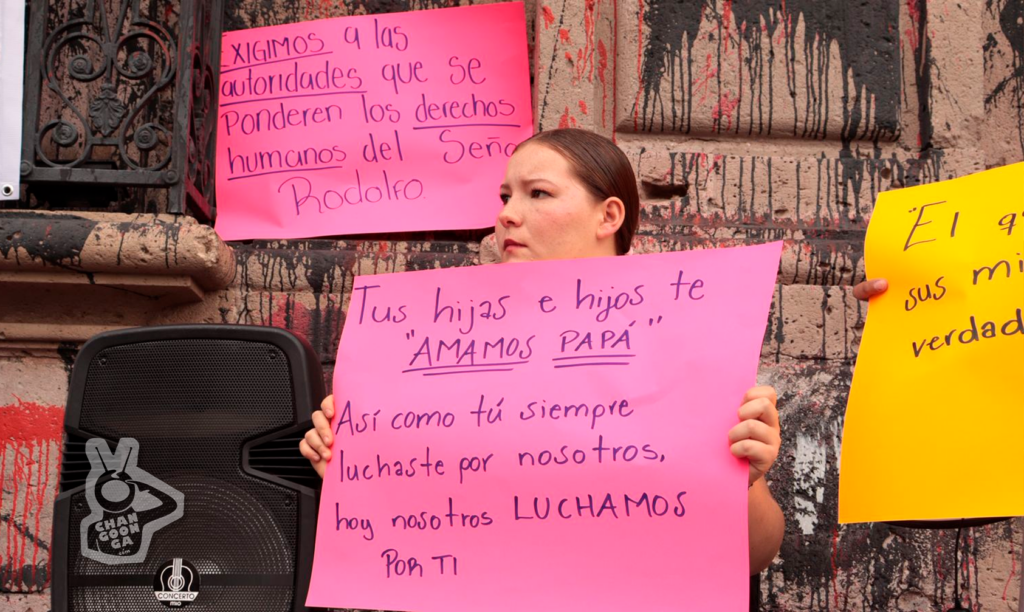 XIGIMOS a las
autoridades que se
Ponderen los derechos
humanos del Seño
Rodolfo.
Tus hijas e hijos te
"AMAMOS PAPÁ"
Así como tú siempre
luchaste por nosotros,
hoy nosotros LUCHAMOS
POR TI
"El q
sus mi
verdad
CHAN
GOON
GA
.COM
CONCERTO